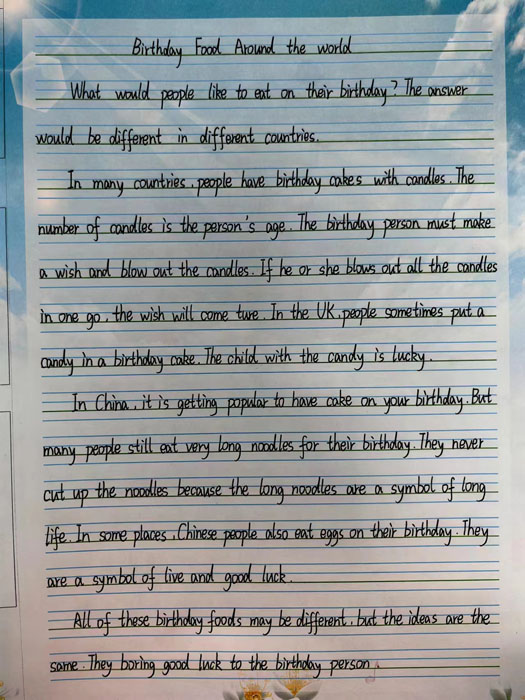 Birthday Food Around the world
What would people like to eat on their birthday? The answer
would be different in different countries.
In many countries, people have birthday cakes with candles. The
number of candles is the person's age. The birthday person must make
a wish and blow out the candles. If he or she blows out all the candles
in one go, the wish will come ture. In the UK, people sometimes put a
candy in a birthday cake. The child with the candy is lucky.
In China, it is getting popular to have cake on your birthday. But
many people still eat very long noodles for their birthday. They never
cut up the noodles because the long noodles are a symbol of long
life. In some places, Chinese people also eat eggs on their birthday. They
are a symbol of live and good luck.
All of these birthday foods may be different, but the ideas are the
same. They boring good luck to the birthday person.